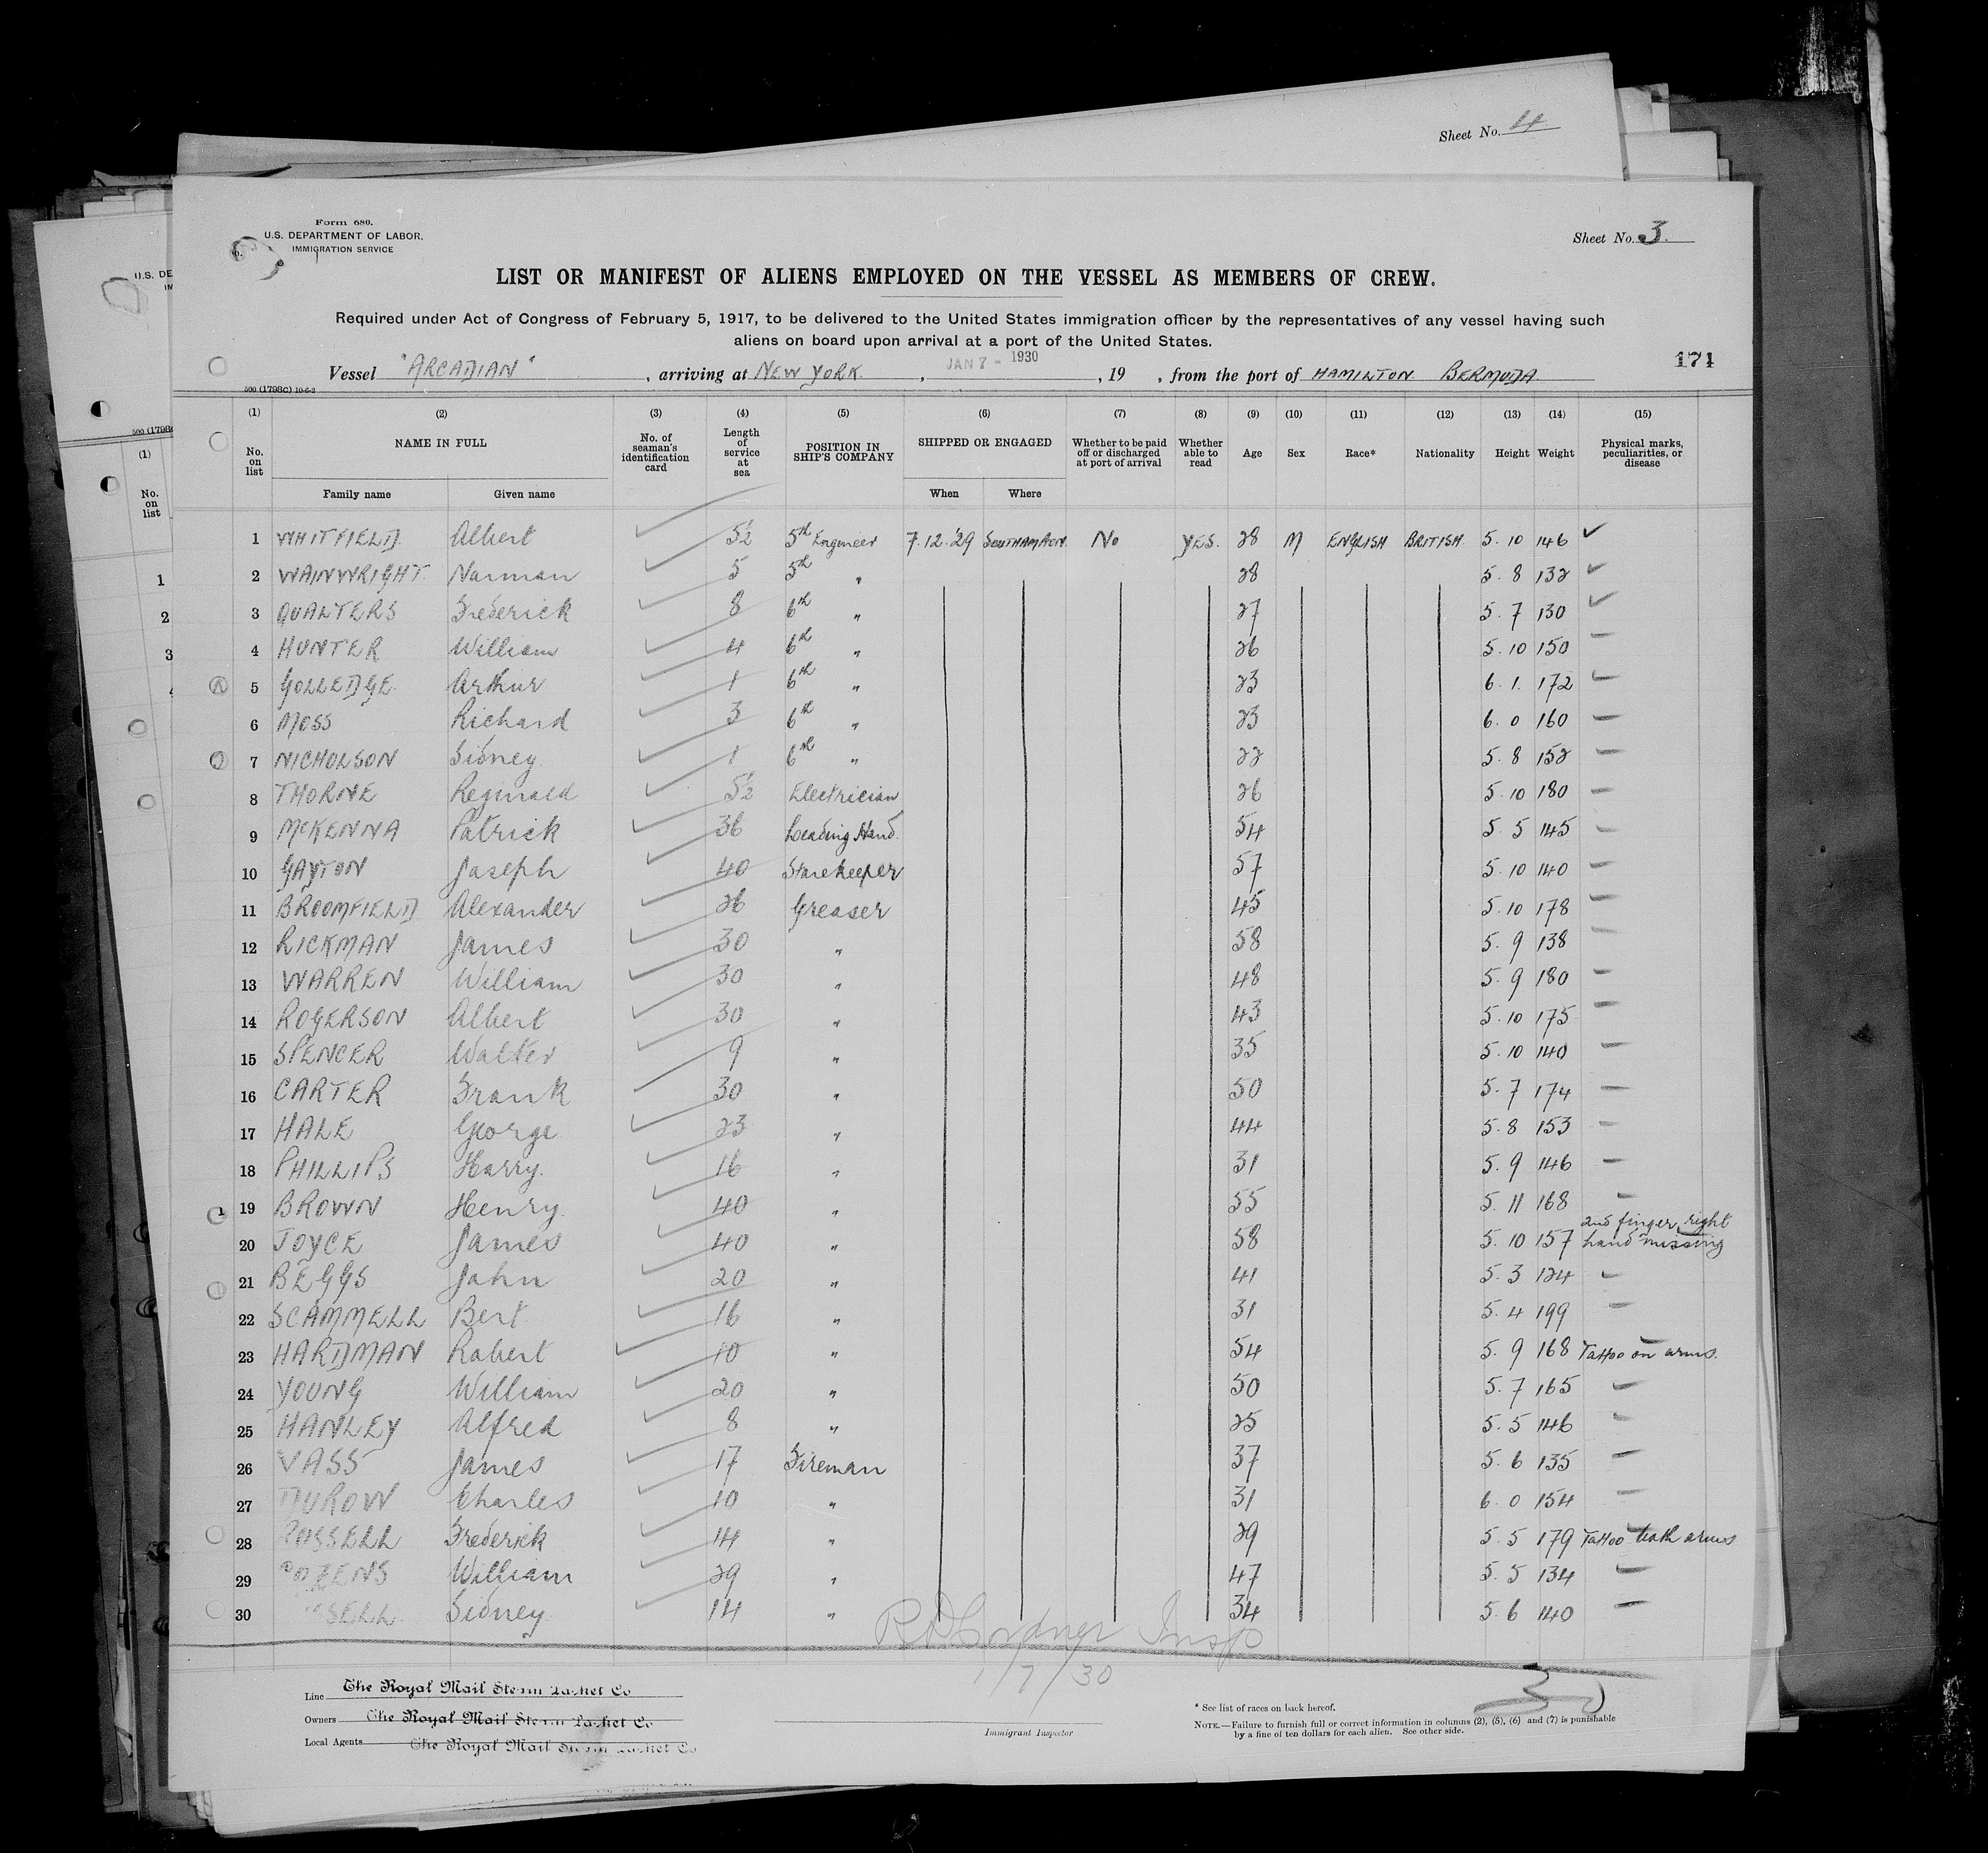 Sheet No. 4
Form 680.
U.S. DEPARTMENT OF LABOR.
IMMIGRATION SERVICE
Sheet No. 3.
LIST OR MANIFEST OF ALIENS EMPLOYED ON THE VESSEL AS MEMBERS OF CREW.
Required under Act of Congress of February 5, 1917, to be delivered to the United States immigration officer by the representatives of any vessel having such
aliens on board upon arrival at a port of the United States.
Vessel "ARCADIAN", arriving at NEW YORK, JAN 7 - 1930, 19 , from the port of HAMILTON BERMUDA
171
500 (1798c) 10-6-2
(1) (2) (3) (4) (5) (6) (7) (8) (9) (10) (11) (12) (13) (14) (15)
No. on list NAME IN FULL No. of seaman's identification card Length of service at sea POSITION IN SHIP'S COMPANY SHIPPED OR ENGAGED Whether to be paid off or discharged at port of arrival Whether able to read Age Sex Race* Nationality Height Weight Physical marks, peculiarities, or disease
Family name Given name When Where
1 WHITFIELD. Albert 5½ 5th Engineer 7.12.'29 SOUTHAMPTON. No YES. 28 M ENGLISH BRITISH. 5. 10 146
2 WAINWRIGHT Norman 5 5th " 28 5. 8 132
3 QUALTERS Frederick 8 6th " 27 5. 7 130
4 HUNTER William 4 6th " 26 5. 10 150
5 GOLLEDGE. Arthur 1 6th " 23 6. 1. 172
6 MOSS Richard 3 6th " 23 6. 0 160
7 NICHOLSON Sidney. 1 6th " 22 5. 8 152
8 THORNE Reginald 5½ Electrician 26 5. 10 180
9 McKENNA Patrick 36 Leading Hand. 54 5. 5 145
10 GAYTON Joseph 40 Storekeeper 57 5. 10 140
11 BROOMFIELD Alexander 26 Greaser 45 5. 10 178
12 RICKMAN James 30 " 58 5. 9 138
13 WARREN William 30 " 48 5. 9 180
14 ROGERSON Albert 30 " 43 5. 10 175
15 SPENCER Walter 9 " 35 5. 10 140
16 CARTER Frank 30 " 50 5. 7 174
17 HALE George 23 " 44 5. 8 153
18 PHILLIPS Harry. 16 " 31 5. 9 146
19 BROWN Henry. 40 " 55 5. 11 168
20 JOYCE James 40 " 58 5. 10 157 2nd finger right hand missing
21 BEGGS John 20 " 41 5. 3 124
22 SCAMMELL Bert 16 " 31 5. 4 199
23 HARDMAN Robert 10 " 54 5. 9 168 Tattoo on arms.
24 YOUNG William 20 " 50 5. 7 165
25 HANLEY Alfred 8 " 25 5. 5 146
26 VASS James 17 Fireman 37 5. 6 135
27 DUROW Charles 10 " 31 6. 0 154
28 Frederick 14 " 29 5. 5 179 Tattoo both arms
29 COZENS William 29 " 47 5. 5 134
30 Sidney. 14 " 34 5. 6 140
Insp
1/7/30
30
Line The Royal Mail Steam Packet Co
Owners The Royal Mail Steam Packet Co.
Local Agents The Royal Mail Steam Packet Co
Immigrant Inspector
* See list of races on back hereof.
NOTE.—Failure to furnish full or correct information in columns (2), (5), (6) and (7) is punishable
by a fine of ten dollars for each alien. See other side.